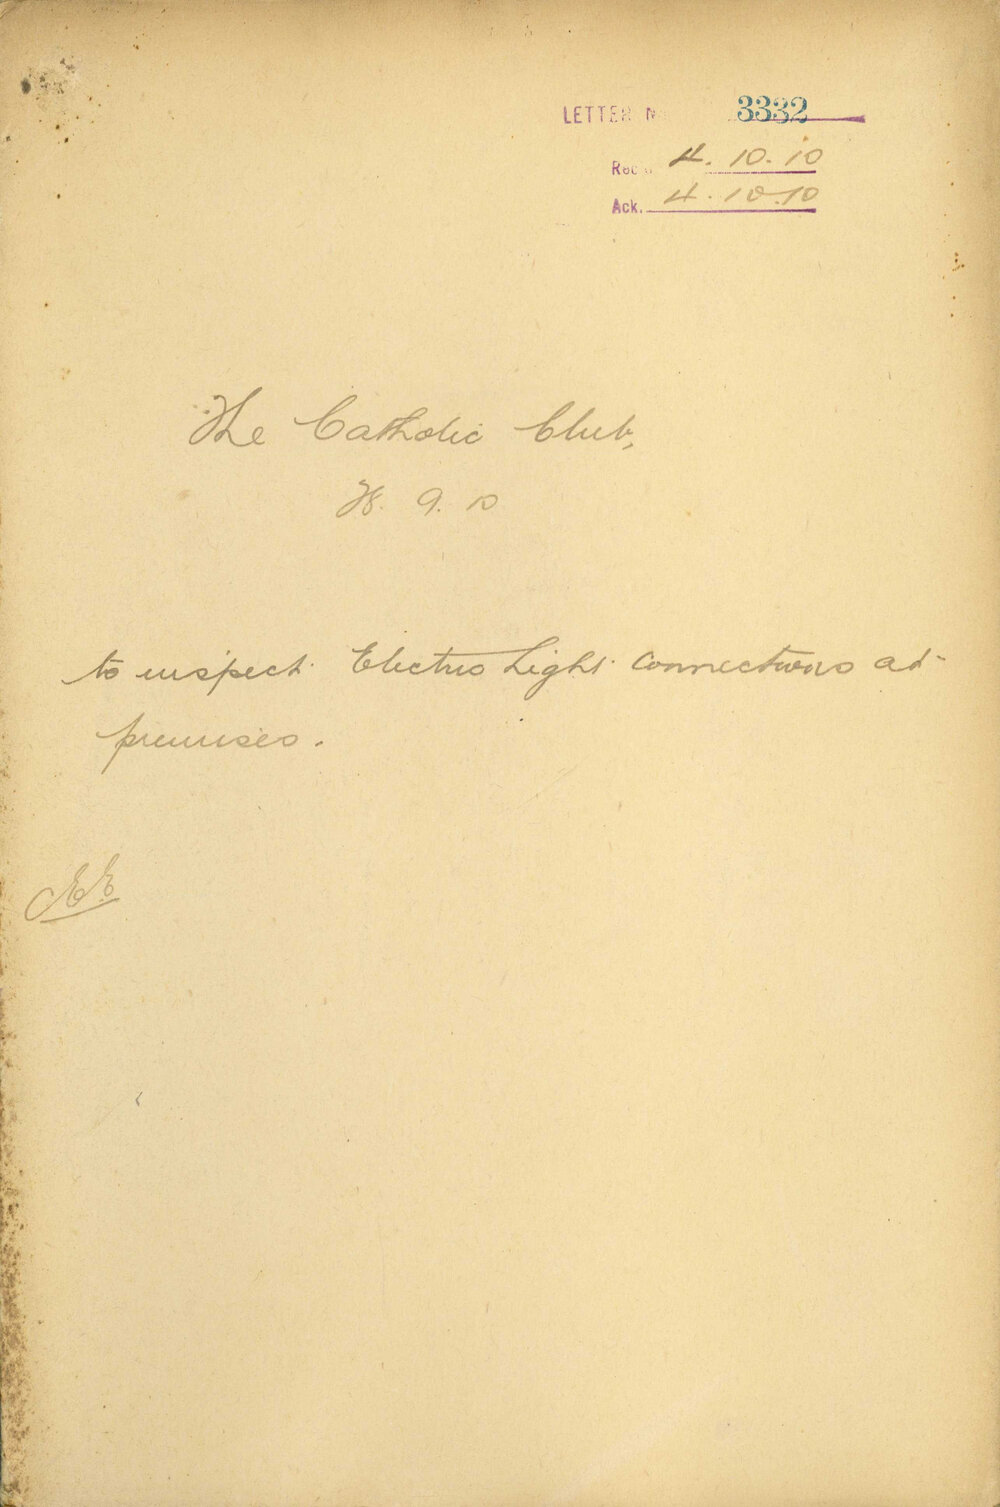 LETTER No 3332
Rec'd 4.10.10
Ack. 4.10.10
The Catholic Club,
9.10
to inspect Electric Light connections at
premises.
EE